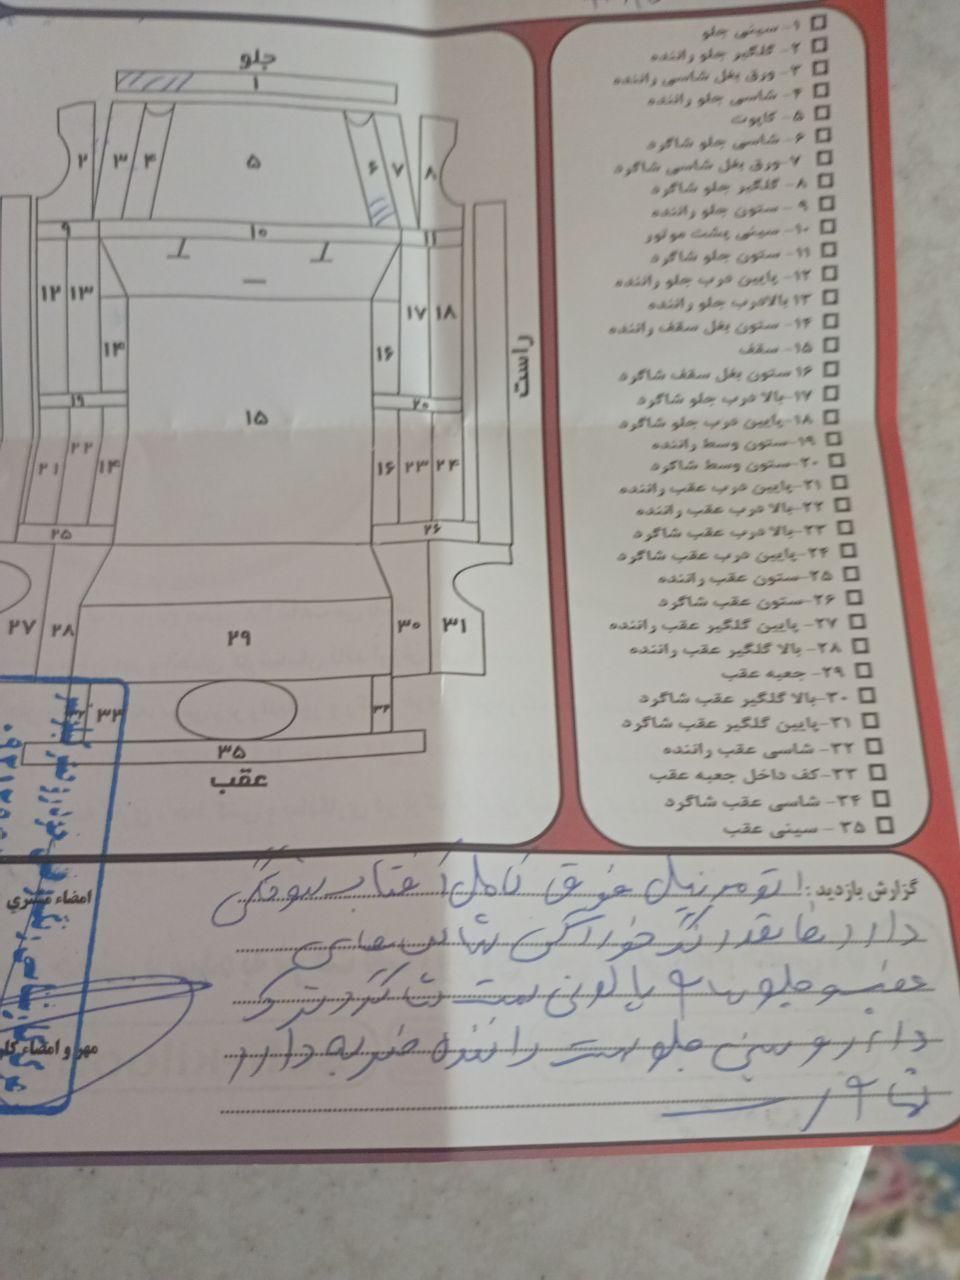 ۱- سینی جلو
۲- گلگیر جلو راننده
۳- ورق بغل شاسی راننده
۴- شاسی جلو راننده
۵- کاپوت
۶- شاسی جلو شاگرد
۷- ورق بغل شاسی شاگرد
۸- گلگیر جلو شاگرد
۹- ستون جلو راننده
۱۰- سینی پشت موتور
۱۱- ستون جلو شاگرد
۱۲- پایین درب جلو راننده
۱۳ بالادرب جلو راننده
۱۴- ستون بغل سقف راننده
۱۵- سقف
۱۶ ستون بغل سقف شاگرد
۱۷- بالا درب جلو شاگرد
۱۸- پایین درب جلو شاگرد
۱۹- ستون وسط راننده
۲۰- ستون وسط شاگرد
۲۱- پایین درب عقب راننده
۲۲- بالا درب عقب راننده
۲۳- بالا درب عقب شاگرد
۲۴- پایین درب عقب شاگرد
۲۵- ستون عقب راننده
۲۶- ستون عقب شاگرد
۲۷- پایین گلگیر عقب راننده
۲۸- بالا گلگیر عقب راننده
۲۹- جعبه عقب
۳۰- بالا گلگیر عقب شاگرد
۳۱- پایین گلگیر عقب شاگرد
۳۲- شاسی عقب راننده
۳۳- کف داخل جعبه عقب
۳۴- شاسی عقب شاگرد
۳۵- سینی عقب
جلو
۱
۲ ۳ ۴ ۵ ۶ ۷ ۸
۹ ۱۰ ۱۱
۱۲ ۱۳ ۱۴ ۱۶ ۱۷ ۱۸
راست
۱۹ ۱۵ ۲۰
۲۱ ۲۲ ۱۴ ۱۶ ۲۳ ۲۴
۲۵ ۲۶
۲۷ ۲۸ ۲۹ ۳۰ ۳۱
۳۳ ۳۴
۳۵
عقب
گزارش بازدید: اتومبیل فوق کامل آفتاب سوختگی
دارد شاسی های
عقب و جلو سالم شاگرد ترک
دارد و سینی جلو سمت راننده ضربه دارد
امضاء مشتری
مهر و امضاء